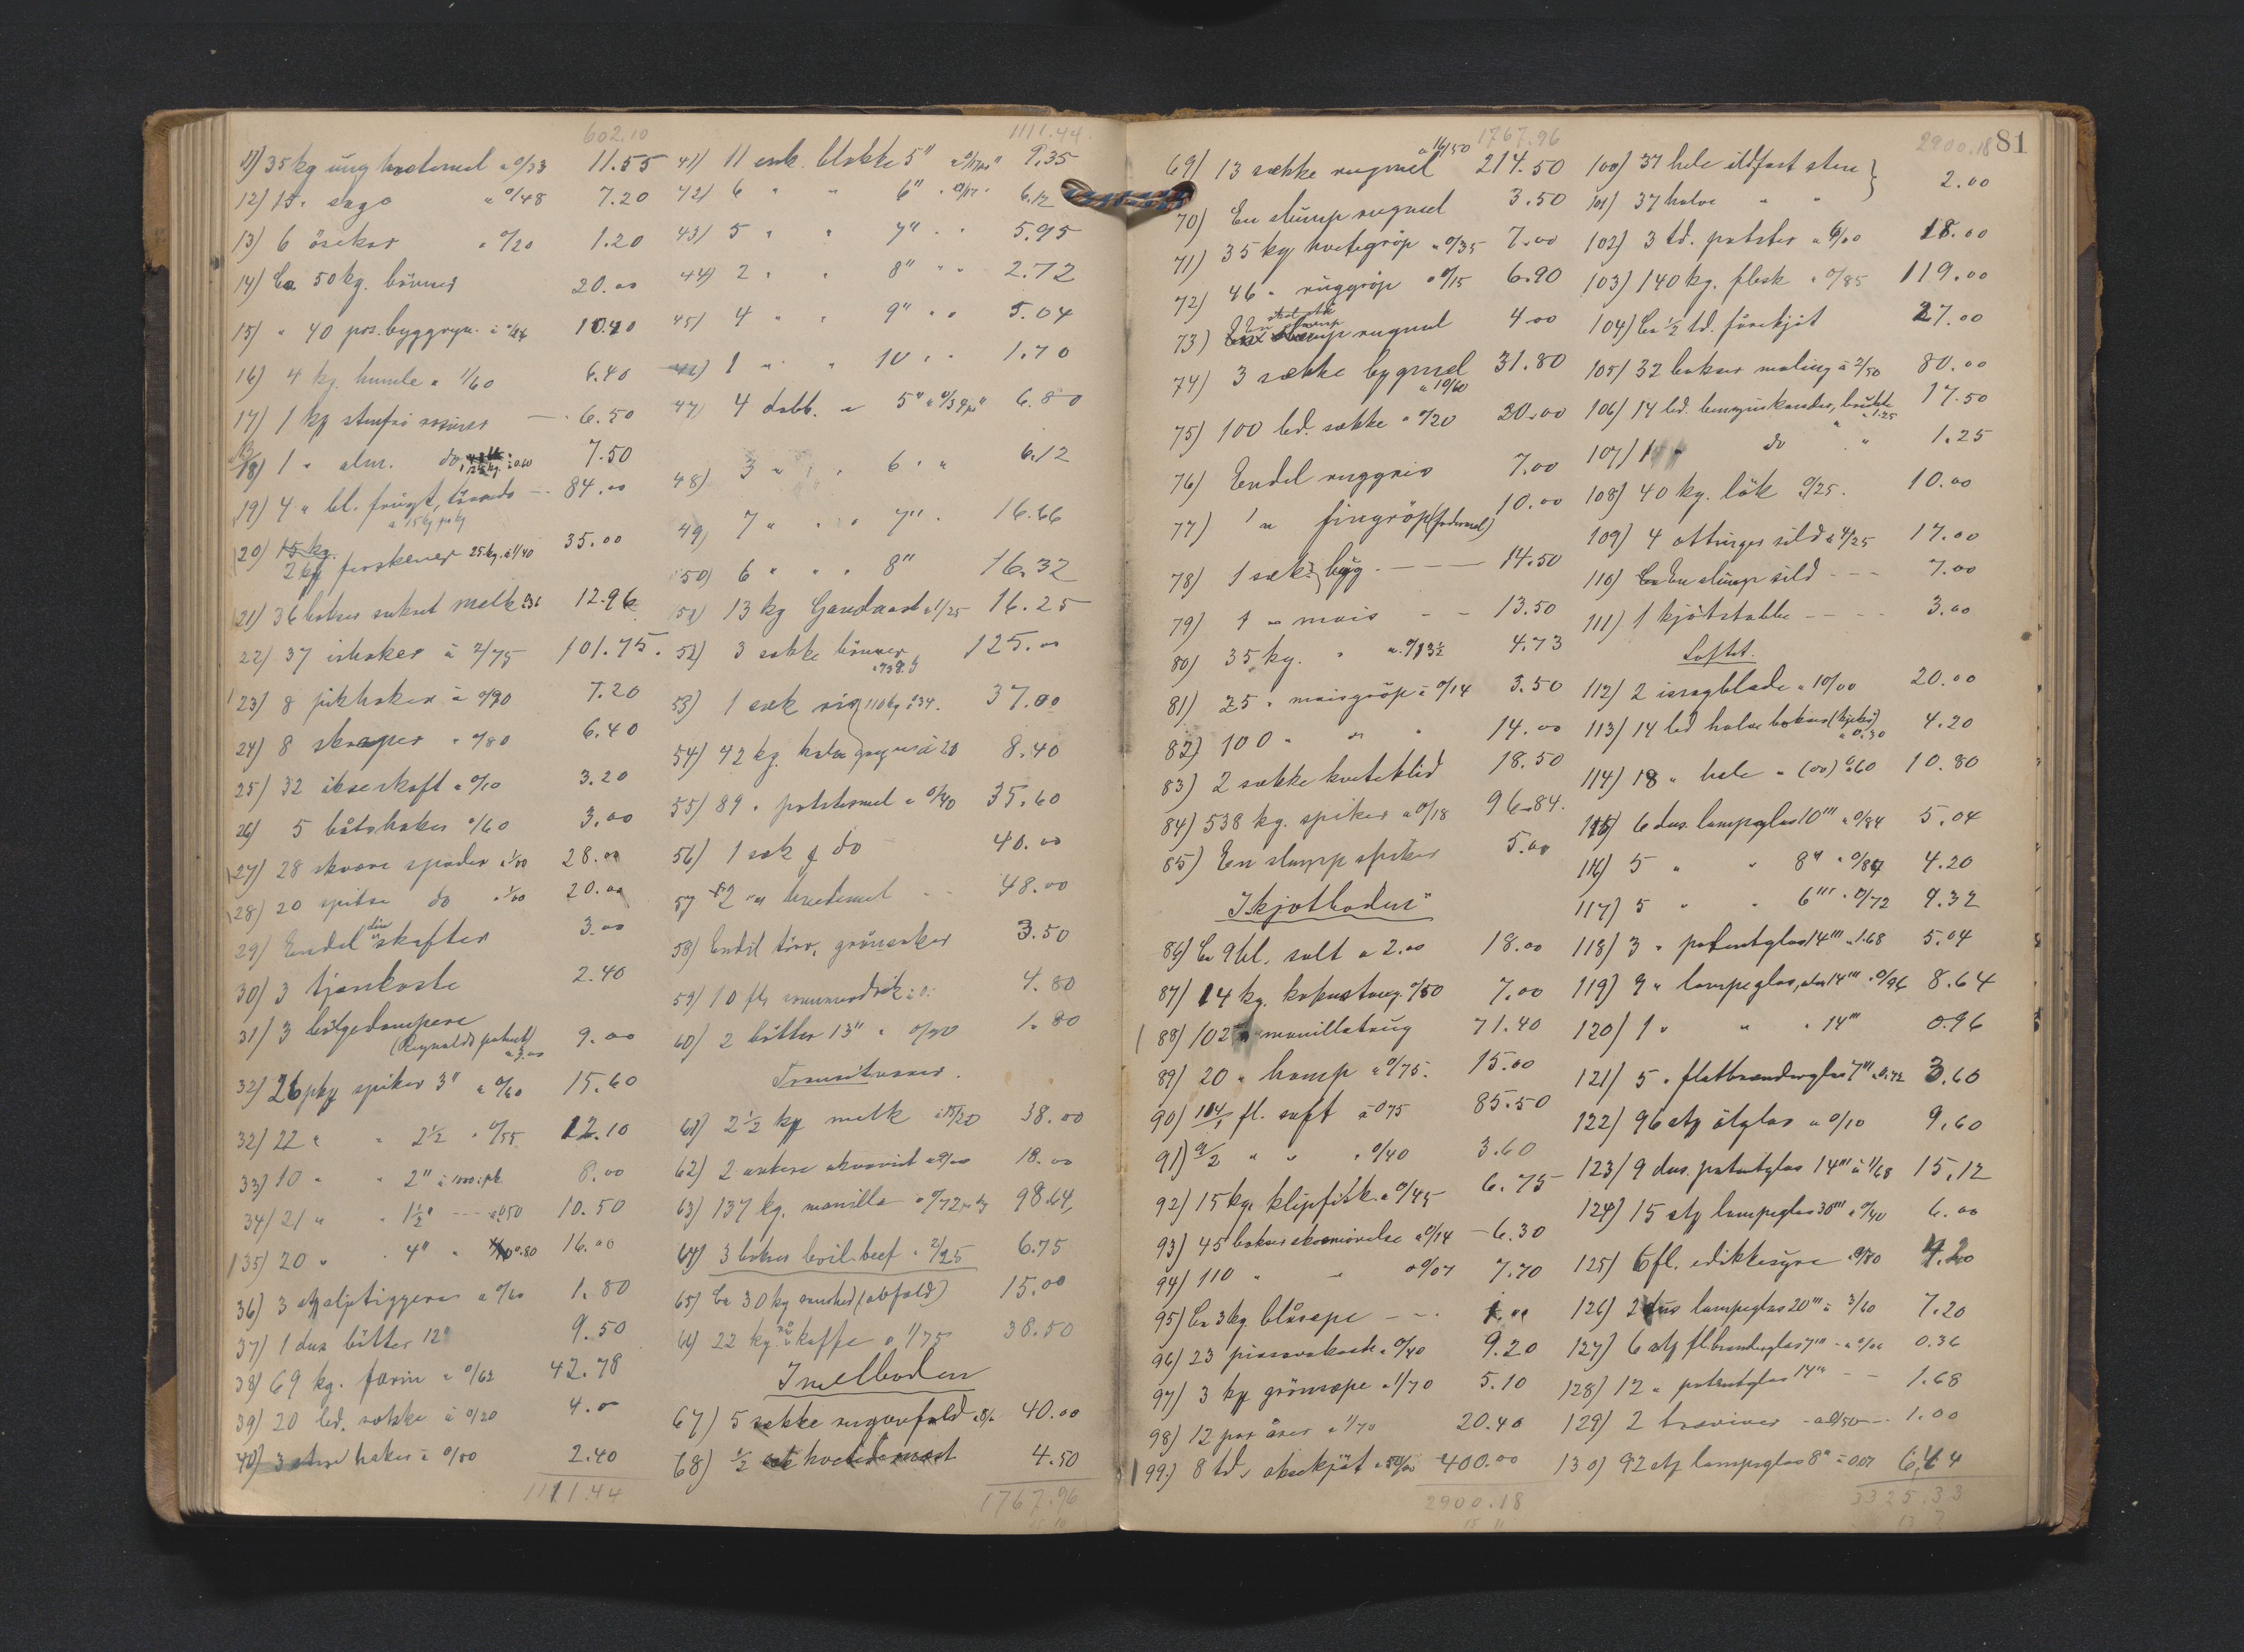 602.10
11) 35 kg ung. hvetemel a 0/33 11.55
12) 15 " sago a 0/48 7.20
13) 6 ösekar a 0/20 1.20
14) Ca 50 kg. bönner 20.00
15) " 40 pos. byggryn 10.40
16) 4 kg. humle a 1/60 6.40
17) 1 kg stenfri rosiner 6.50
18) 1 " alm. do 7.50
19) 4 " bl. frugt, törrede 84.00
20) 2 ks ferskener 25 kg. à 1/40 35.00
21) 36 bokser sukret melk 12.96
22) 37 ishaker à 2/75 101.75
23) 8 pikhaker à 0/90 7.20
24) 8 skraper a 0/80 6.40
25) 32 økseskaft a 0/10 3.20
26) 5 båtshaker 0/60 3.00
27) 28 skvare spader a 1/00 28.00
28) 20 spitse do a 1/00 20.00
29) Endel div skafter 3.00
30) 3 tjærekoste 2.40
31) 3 bölgedæmpere 9.00
(Reynolds patent)
a 3.00
32) 26 pkg spiker 3" a 0/60 15.60
32) 22 " " 2½ " 0/55 12.10
33) 10 " " 2" 8.00
34) 21 " " 1½" a 0.50 10.50
35) 20 " " 4" " 0.80 16.00
36) 3 stg a 0/60 1.80
37) 1 dus bötter 12" 9.50
38) 69 kg. farin a 0/62 42.78
39) 20 led. sække à 0/20 4.00
40) 3 haker à 0/80 2.40
1111.44
1111.44
41) 11 enk. blokke 5" 9.35
42) 6 " " 6" 6.12
43) 5 " " 7" " " 5.95
44) 2 " " 8" " " 2.72
45) 4 " " 9" " " 5.04
46) 1 " " 10 " " 1.70
47) 4 dobb. " 5" 6.80
48) 3 " " " 6 " " 6.12
49) 7 " " " 7" " 16.66
50) 6 " " " 8" 16.32
51) 13 kg Gaudaost a 1/25 16.25
52) 3 sække bönner 125.00
53) 1 sæk ris 110 kg 37.00
54) 42 kg. à 20 8.40
55) 89 " potetesmel a 0/40 35.60
56) 1 sæk do 40.00
57) 2 " hvedemel 48.00
58) Endel törr. grönsaker 3.50
59) 10 fl. 4.80
60) 2 bötter 13" a 0/90 1.80
Transitvarer.
61) 2½ ks melk 38.00
62) 2 ankere akvavit a 9/00 18.00
63) 137 kg. manilla a 0/72 pr kg 98.64
64) 3 bokser boil. beef a 2/25 6.75
65) Ca 30 kg (abfald) 15.00
66) 22 kg. kaffe a 1/75 38.50
I melboden
67) 5 sække rugavfald 40.00
68) ½ sæk 4.50
1767.96
81
1767.96
a 16/50
69) 13 sække rugmel 214.50
70) En slump rugmel 3.50
71) 35 kg hvetegröp 7.00
72) 46 " ruggröp a 0/15 6.90
73) rugmel 4.00
74) 3 sække bygmel 31.80
a 10/60
75) 100 led. sække a 0/20 20.00
76) Endel ruggris 7.00
77) 1 " fingröp (fodermel) 10.00
78) 1 sæk byg 14.50
79) 1 " mais 13.50
80) 35 kg. " a 0/13½ 4.73
81) 25 " maisgröp à 0/14 3.50
82) 100 " " " 14.00
83) 2 sække hveteklid 18.50
84) 538 kg. spiker a 0/18 96.84
85) En slump spiker 5.00
I kjötboden
86) Ca 9 hl. salt a 2.00 18.00
87) 14 kg. kokostaug 0/50 7.00
88) 102 " manillataug 71.40
89) 20 " hamp a 0/75 15.00
90) 114/1 fl. saft à 0.75 85.50
91) 9/2 " " " 0/40 3.60
92) 15 kg. klipfisk a 0/45 6.75
93) 45 bokser skosmörelse a 0/14 6.30
94) 110 " " a 0/07 7.70
95) Ca 3 kg. blåsæpe
96) 23 piassavakoste a 0/40 9.20
97) 3 kg grönsæpe a 1/70 5.10
98) 12 par årer a 1/70 20.40
99) 8 td. oksekjöt a 50/00 400.00
2900.18
2900.18
100) 37 hele ildfast sten }
101) 37 halve " " 2.00
102) 3 td. poteter a 6/00 18.00
103) 140 kg. flesk a 0/85 119.00
104) Ca ½ td. fårekjöt 27.00
105) 32 bokser maling à 2/50 80.00
106) 14 led. bensinkander, brukte 17.50
a 1.25
107) 1 " do " 1.25
108) 40 kg. lök 0/25. 10.00
109) 4 ottinger sild à 4/25 17.00
110) En slump sild 7.00
111) 1 kjötstabbe 3.00
Loftet.
112) 2 issagblade a 10/00 20.00
113) 14 led halve bokser (kjeks) 4.20
a 0.30
114) 18 " hele " (do) 60 10.80
115) 6 dus. lampeglas 10''' a 0/84 5.04
116) 5 " " 8" a 0/84 4.20
117) 5 " " 6''' a 0/72 9.32
118) 3 " patentglas 14''' a 1.68 5.04
119) 9 " lampeglas, alm 14''' a 0/96 8.64
120) 1 " " " 14''' 0.96
121) 5 " flatbrænderglas 7''' a 0.72 3.60
122) 96 stg ölglas a 0/10 9.60
123) 9 dus. patentglas 14''' à 1/68 15.12
124) 15 stg lampeglas 30''' a 0/40 6.00
125) 6 fl. edikksyre 4.20
126) 2 dus lampeglas 20''' à 3/60 7.20
127) 6 stg fl.brænderglas 7''' a 0/06 0.36
128) 12 " patentglas 14''' 1.68
129) 2 a 0/50 1.00
130) 92 stg lampeglas 8" à 0.07 6.44
3325.33